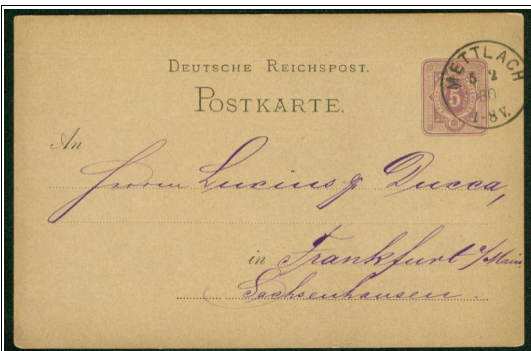 DEUTSCHE REICHSPOST.
POSTKARTE.
METTLACH
5 2
80
7-8 V.
5
An
Herren Lucius & Ducca,
in Frankfurt a/Main
Sachsenhausen.